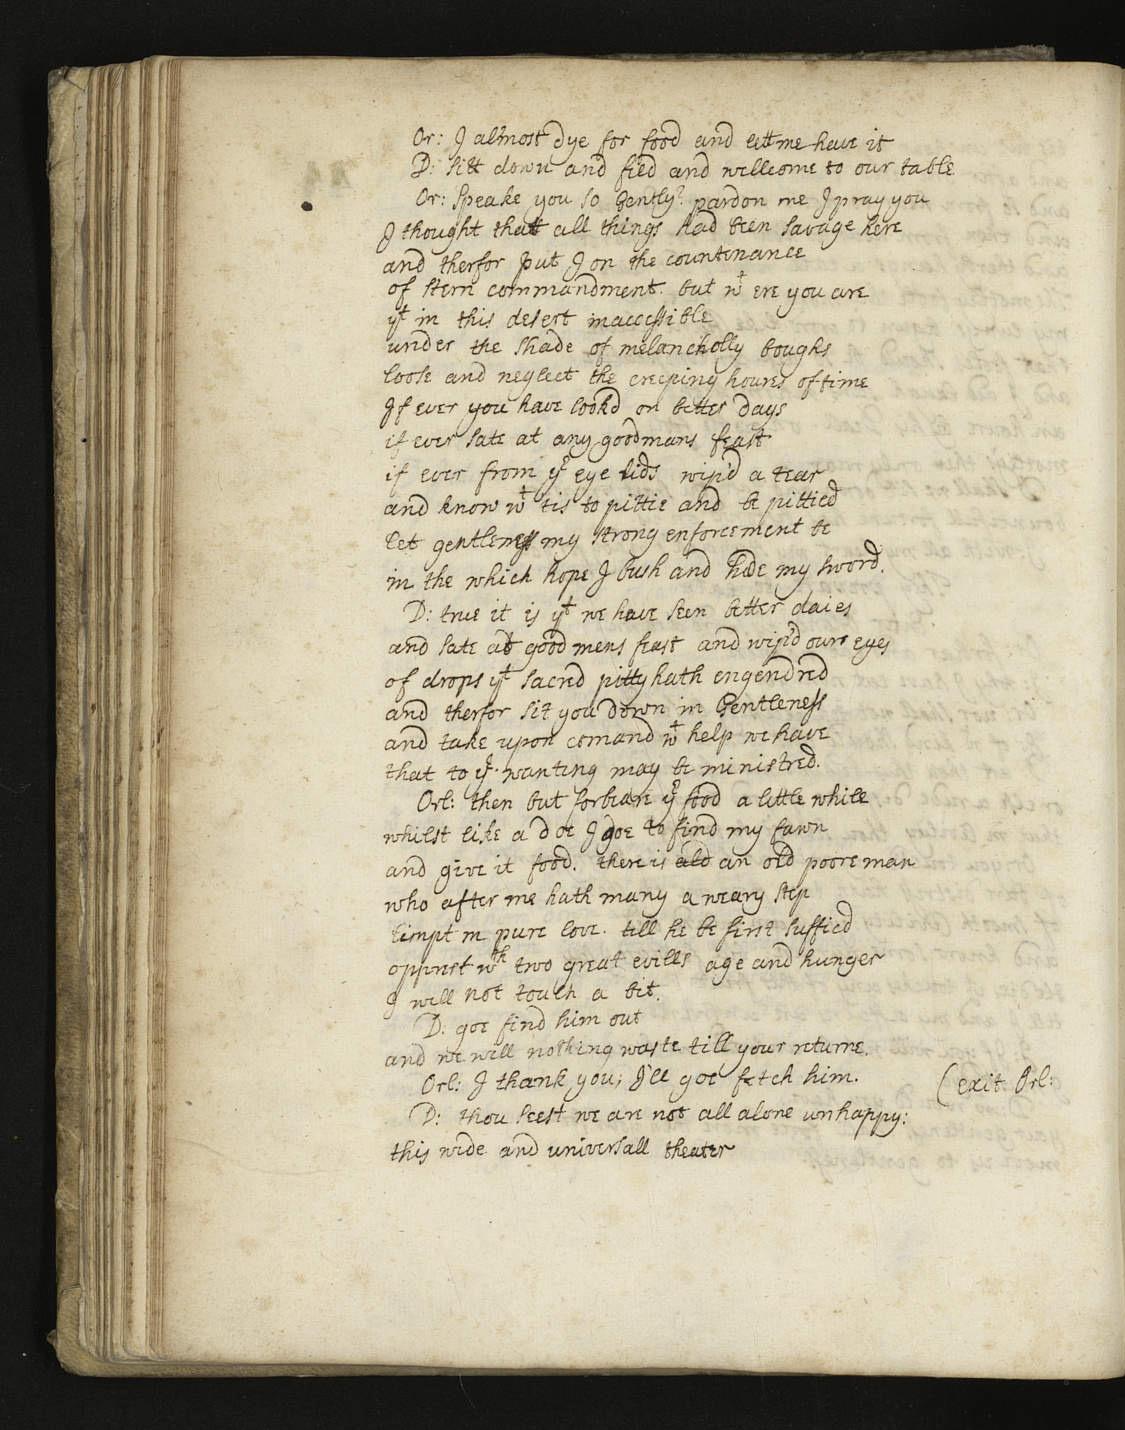 Or: I almost dye for food and lett me have it
D: Sitt down and fied and wellcome to our table
Or: Speake you so gently? pardon me I pray you
I thought that all things had been savage here
and therfor put I on the countinance
of stern commandment. but wt ere you are
yt in this desert inaccessible
under the shade of melancholly boughs
loose and neglect the creeping houres of time
If ever you have lookd on better days
if ever sate at any goodmans feast
if ever from yr eye lids wip'd a tear
and know wt tis to pittie and be pittied
let gentleness my strong enforcement be
in the which hope I bush and hide my sword.
D: true it is yt we have seen better daies
and sate at good mens feast and wip'd our eyes
of drops yt sacred pitty hath engendred
and therfor sit you down in gentleness
and take upon comand wt help we have
that to yr wanting may be ministred.
Orl: then but forbeare yr food a little while
whilst like a doe I goe to find my fawn
and give it food. there is ald an old poore man
who after me hath many a weary step
limpt in pure love. till he be first sufficd
opprest wth two great evills age and hunger
I will not touch a bit.
D: goe find him out
and we will nothing waste till your returne.
Orl: I thank you; I'll goe fetch him. (exit Orl:
D: thou seest we are not all alone unhappy:
this wide and universall theater